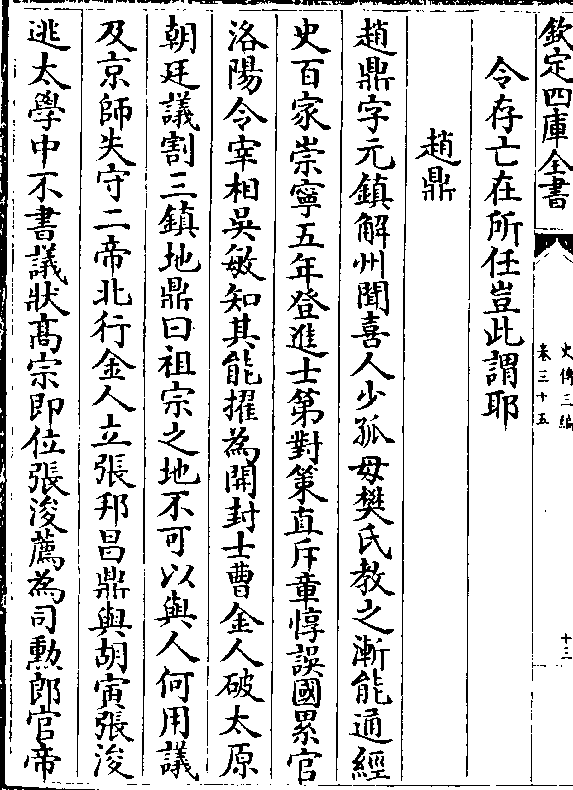 欽定四庫全書
史傳三編
卷三十五
十三
令存亡在所任豈此謂耶
趙鼎
趙鼎字元鎮解州聞喜人少孤母樊氏教之漸能通經
史百家崇寧五年登進士第對策直斥章惇誤國累官
洛陽令宰相吳敏知其能擢為開封士曹金人破太原
朝廷議割三鎮地鼎曰祖宗之地不可以與人何用議
及京師失守二帝北行金人立張邦昌鼎與胡寅張浚
逃太學中不書議狀高宗即位張浚薦為司勳郎官帝